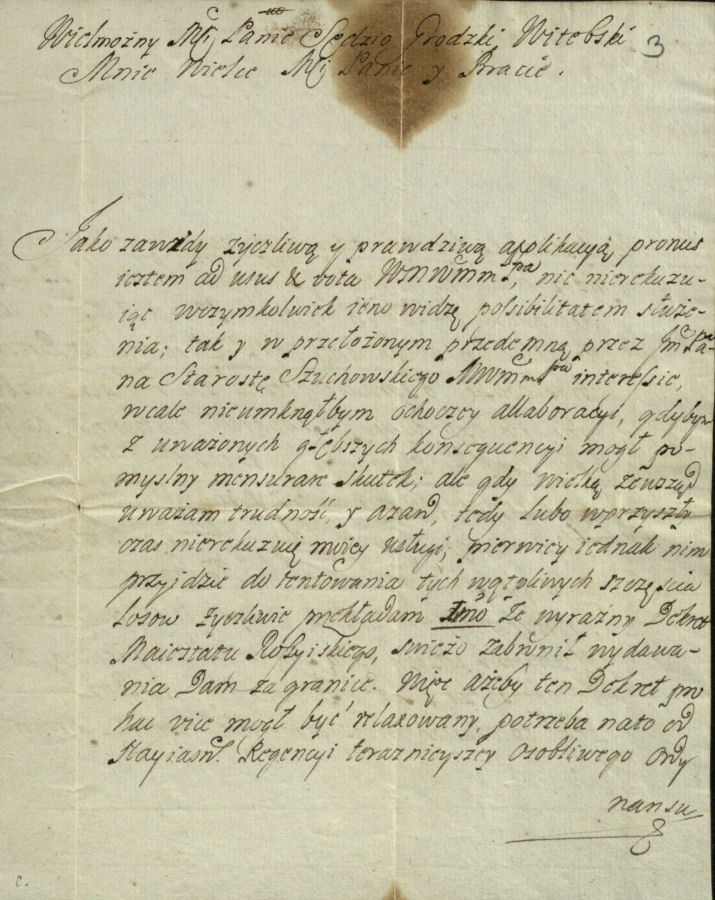 3
Wielmożny Mći Panie Sędzio Grodzki Witebski
Mnie Wielce Mći Panie y Bracie.
Jako zawżdy życzliwą y prawdziwą applikacyą pronus
iestem ad usus & vota nic nierekuzu-
iąc wczymkolwiek ieno widzę possibilitatem służe-
nia; tak y w przełożonym przedemną przez Jmći Pa-
na Starostę Szuchowskiego interessie,
wcale nieumknąłbym ochoczey allaboracyi, gdybym
z uważonych głębszych konsequencyi mogł po-
myslny mensurare skutek; ale gdy wielką zewsząd
uważam trudność, y azard, tedy lubo wprzyszły
czas nierekuzuię moiey usługi, pierwiey iednak nim
przyidzie do tentowania tych wątpliwych szczęscia
losow życzliwie przekładam 1mo Że wyraźny Dekret
Maiestatu Rossyiskiego, swieżo zabronił wydawa-
nia Dam za granice. Więc ażeby ten Dekret pro
hac vice mogł być relaxowany, potrzeba nato od
Nayiasn. Regencyi teraznieyszey osobliwego Ordy
nansu
c.